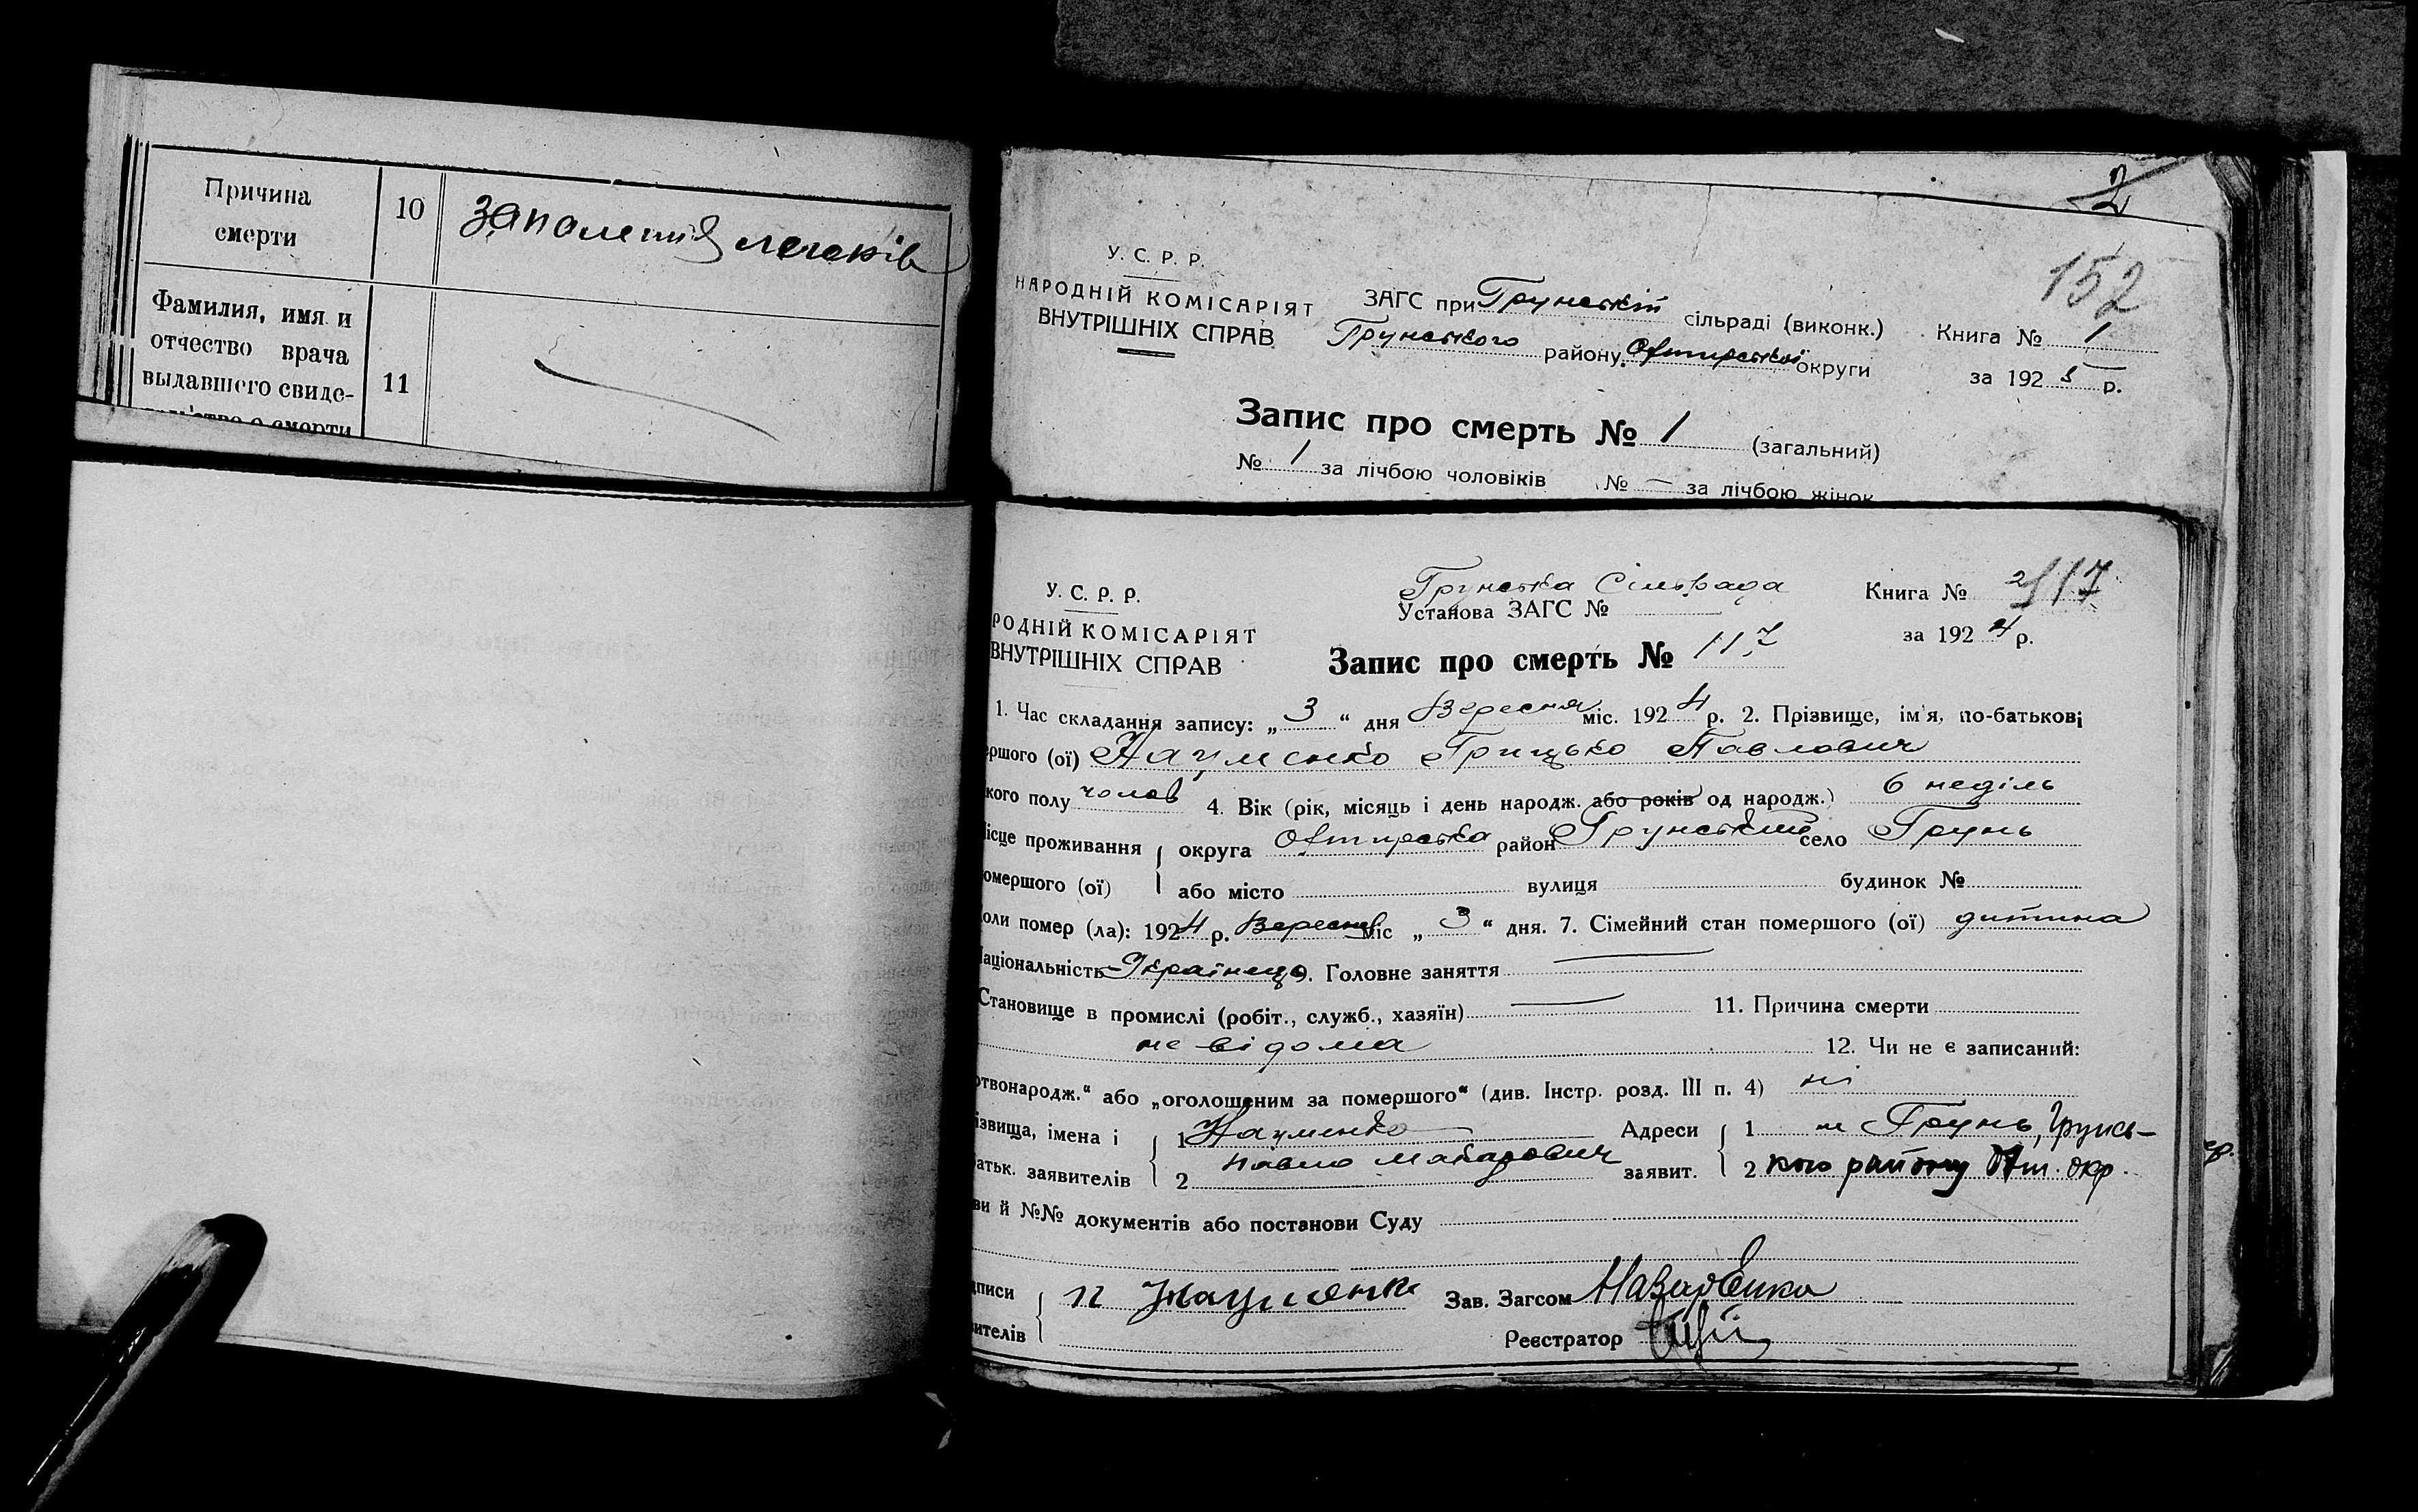 Причина смерти 10 запаления легенів
Фамилия, имя и
отчество врача
выдавшего свиде- 11
2
152
У. С. Р. Р.
НАРОДНІЙ КОМІСАРІЯТ
ВНУТРІШНІХ СПРАВ
ЗАГС при Грунській сільраді (виконк.) Книга № 1
Грунського району Охтирської округи за 1925 р.
Запис про смерть № 1 (загальний)
№ 1 за лічбою чоловіків № — за лічбою жінок
У. С. Р. Р.
РОДНІЙ КОМІСАРІЯТ
ВНУТРІШНІХ СПРАВ
Грунська Сільрада Книга № 2 117
Установа ЗАГС № за 1924 р.
Запис про смерть № 117
1. Час складання запису: „ 3 “ дня Вересня міс. 1924 р. 2. Прізвище, ім'я, по-батькові
ершого (ої) Науменко Грицько Павлович
кого полу чолов 4. Вік (рік, місяць і день народж. або років од народж.) 6 неділь
ісце проживання округа Охтирська район Грунський село Грунь
омершого (ої) або місто вулиця будинок №
оли помер (ла): 1924 р. Вересня міс „ 3 “ дня. 7. Сімейний стан помершого (ої) дитина
аціональність Українець 9. Головне заняття —
Становище в промислі (робіт., служб., хазяїн) — 11. Причина смерти
не відома 12. Чи не є записаний:
ртвонародж.“ або „оголошеним за помершого“ (див. Інстр. розд. III п. 4) ні
ізвища, імена і 1 Науменко Адреси 1 м Грунь, Грунсь-
атьк. заявителів 2 Павло Макарович заявит. 2 кого району Охт. окр.
ви й №№ документів або постанови Суду
дписи п Науменко Зав. Загсом Назаренко
вителів Реєстратор